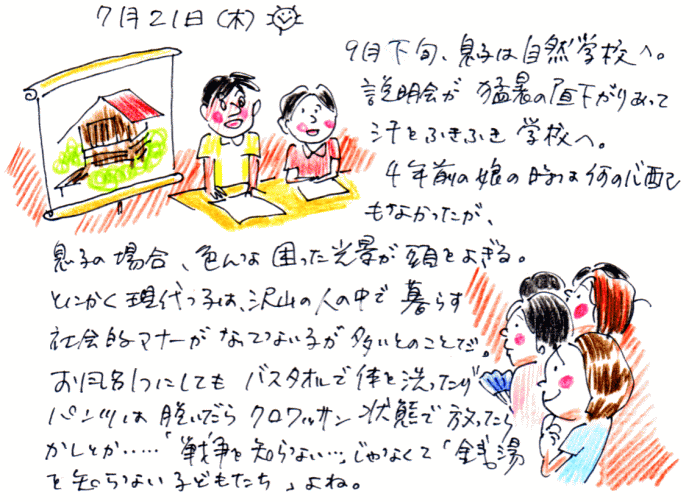 7月21日(木)
9月下旬、息子は自然学校へ。
説明会が 猛暑の昼下がりあって
汗をふきふき 学校へ。
4年前の娘の時は何の心配
もなかったが、
息子の場合、色んな 困った光景が 頭をよぎる。
とにかく現代っ子は、沢山の人の中で 暮らす
社会的マナーが なってない子が 多いとのことだ。
お風呂1つにしても バスタオルで体を洗ったり
パンツは 脱いだら クロワッサン 状態で 放ったら
かしとか‥‥‥「戦争を知らない…」じゃなくて「銭湯
を知らない子どもたち」よね。